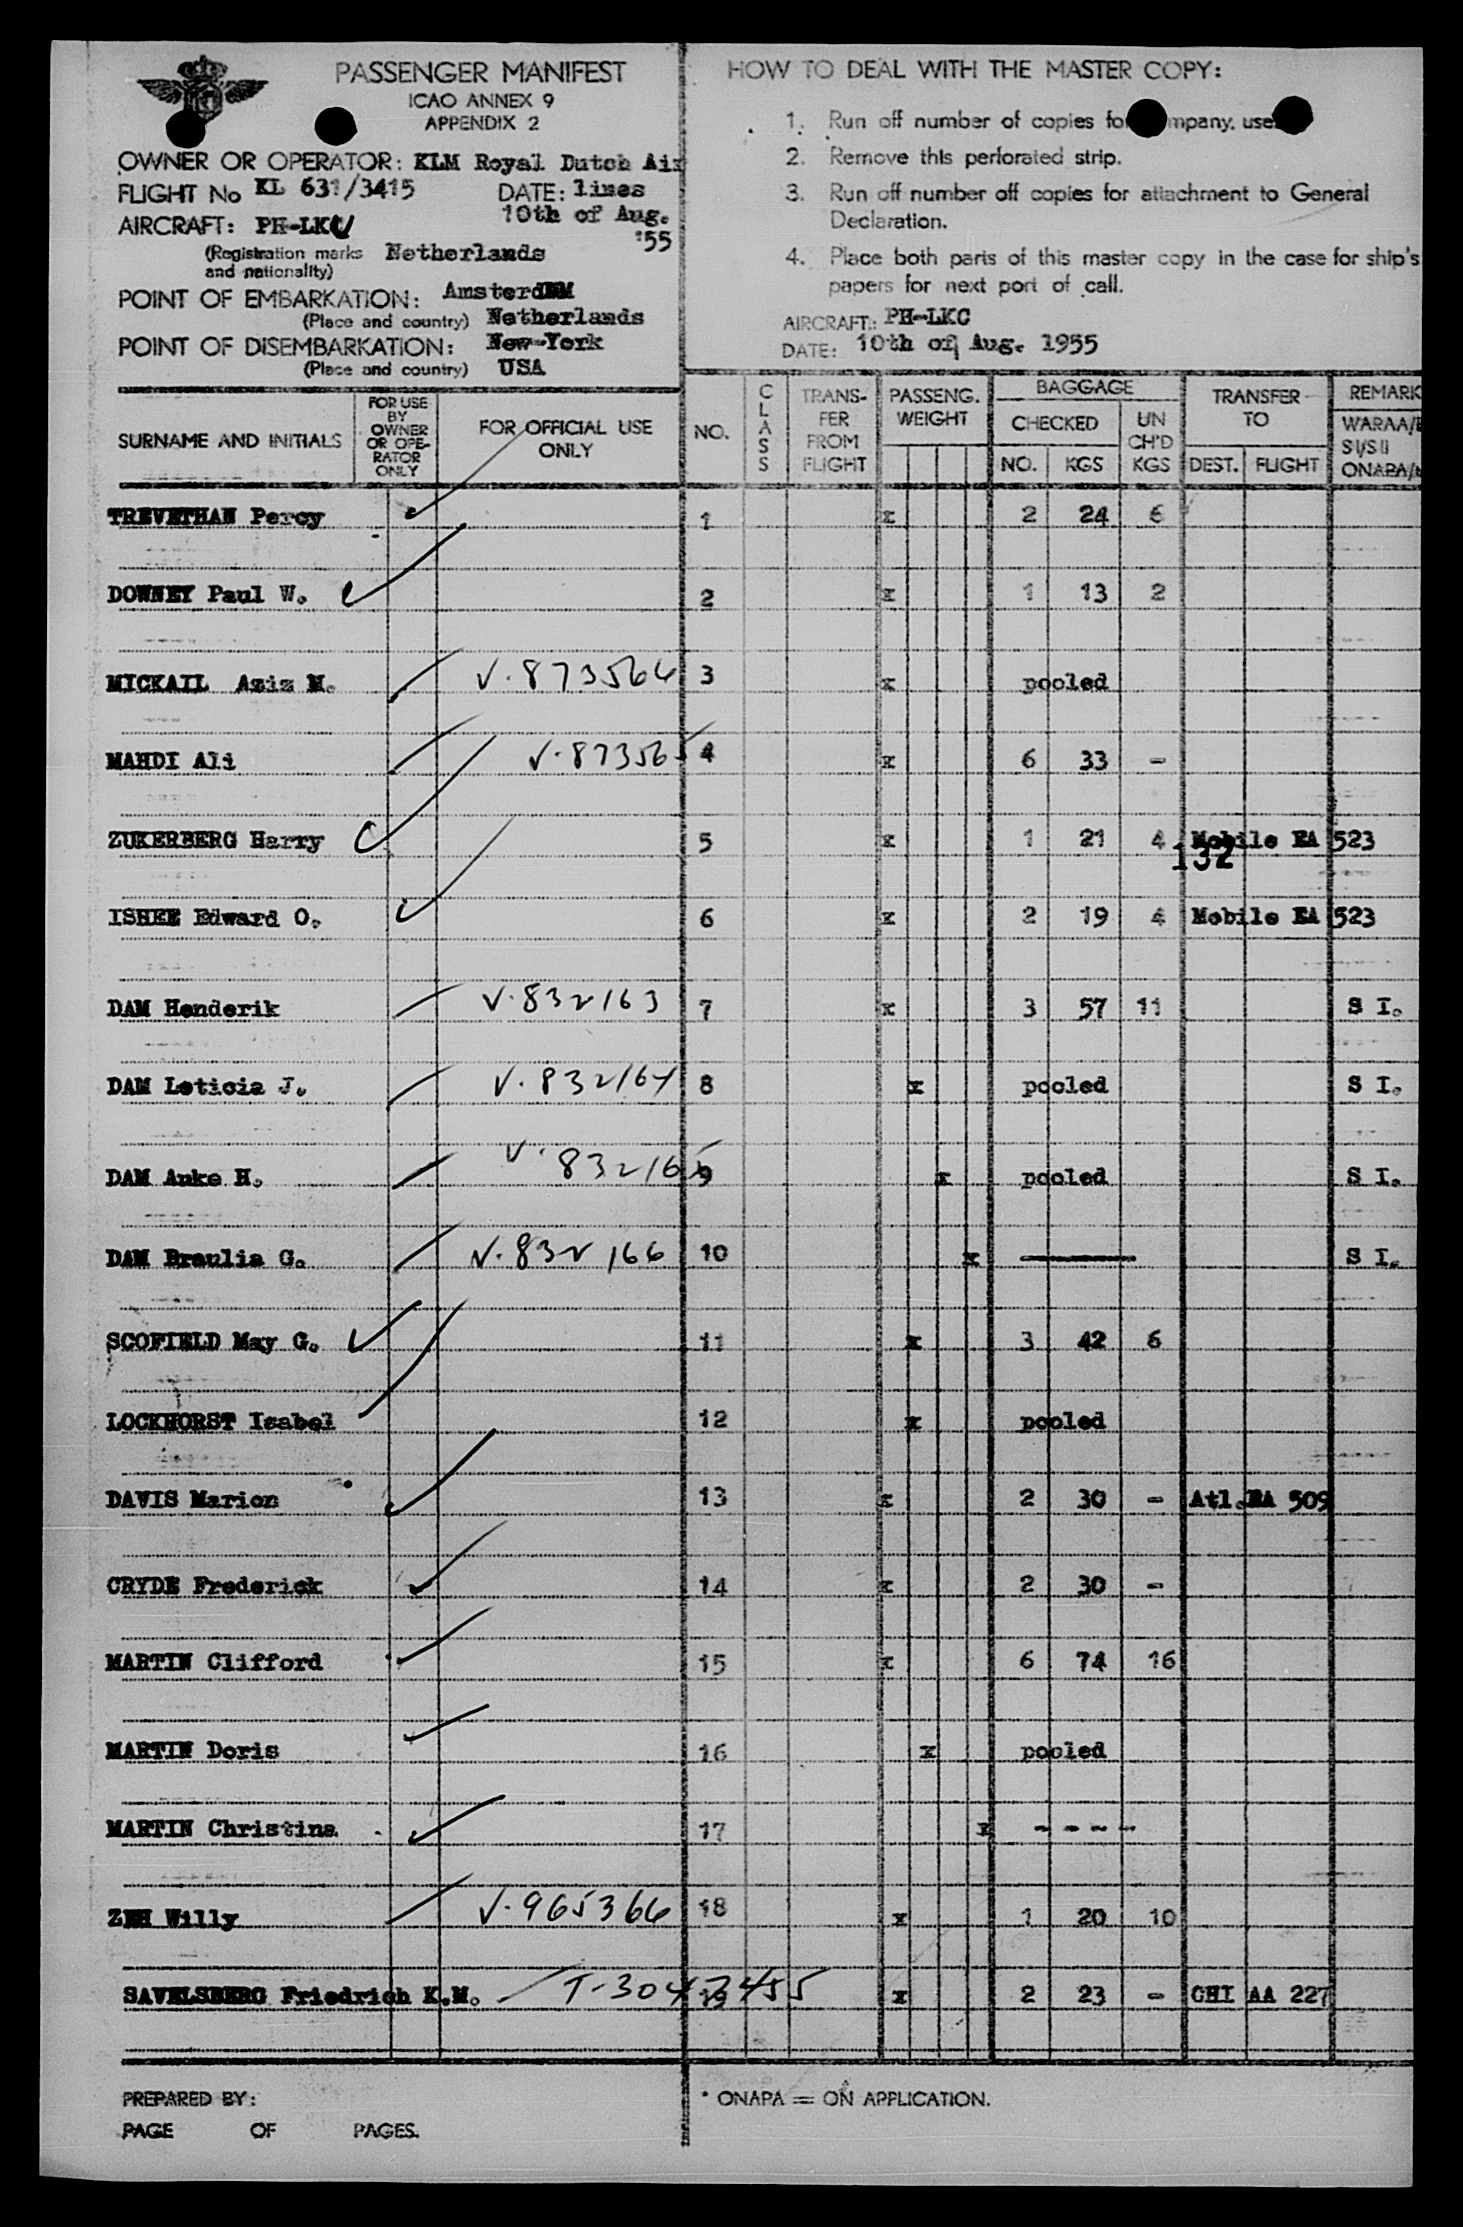 PASSENGER MANIFEST
ICAO ANNEX 9
APPENDIX 2
OWNER OR OPERATOR: KLM Royal Dutch Air
lines
FLIGHT No KL 631/3415 DATE: 10th of Aug. '55
AIRCRAFT: PH-LKC
(Registration marks and nationality) Netherlands
POINT OF EMBARKATION: Amsterdam
(Place and country) Netherlands
POINT OF DISEMBARKATION: New-York
(Place and country) USA
HOW TO DEAL WITH THE MASTER COPY:
1. Run off number of copies for company, use.
2. Remove this perforated strip.
3. Run off number off copies for attachment to General
Declaration.
4. Place both parts of this master copy in the case for ship's
papers for next port of call.
AIRCRAFT: PH-LKC
DATE: 10th of Aug. 1955
SURNAME AND INITIALS
FOR USE BY OWNER OR OPE-RATOR ONLY
FOR OFFICIAL USE ONLY
NO.
CLASS
TRANS-FER FROM FLIGHT
PASSENG. WEIGHT
BAGGAGE
CHECKED
NO. KGS
UN CH'D KGS
TRANSFER TO
DEST. FLIGHT
REMARK
WARAA/
SI/SII
ONAPA/
TREVETHAN Percy 1 x 2 24 6
DOWNEY Paul W. 2 x 1 13 2
MICKAIL Aziz M. V-873564 3 x pooled
MAHDI Ali V-873565 4 x 6 33 -
ZUKERBERG Harry 5 x 1 21 4 Mobile EA 523
132
ISHEE Edward O. 6 x 2 19 4 Mobile EA 523
DAM Henderik V-832163 7 x 3 57 11 S I.
DAM Leticia J. V-832164 8 x pooled S I.
DAM Anke H. V-832165 9 x pooled S I.
DAM Braulia G. V-832166 10 x S I.
SCOFIELD May G. 11 x 3 42 6
LOCKHORST Isabel 12 x pooled
DAVIS Marion 13 x 2 30 - Atl. EA 509
CRYDE Frederick 14 x 2 30 -
MARTIN Clifford 15 x 6 74 16
MARTIN Doris 16 x pooled
MARTIN Christina 17 x - - - -
ZEH Willy V-965366 18 x 1 20 10
SAVELSBERG Friedrich K.M. T-3042455 19 x 2 23 - CHI AA 227
PREPARED BY:
PAGE OF PAGES.
* ONAPA = ON APPLICATION.